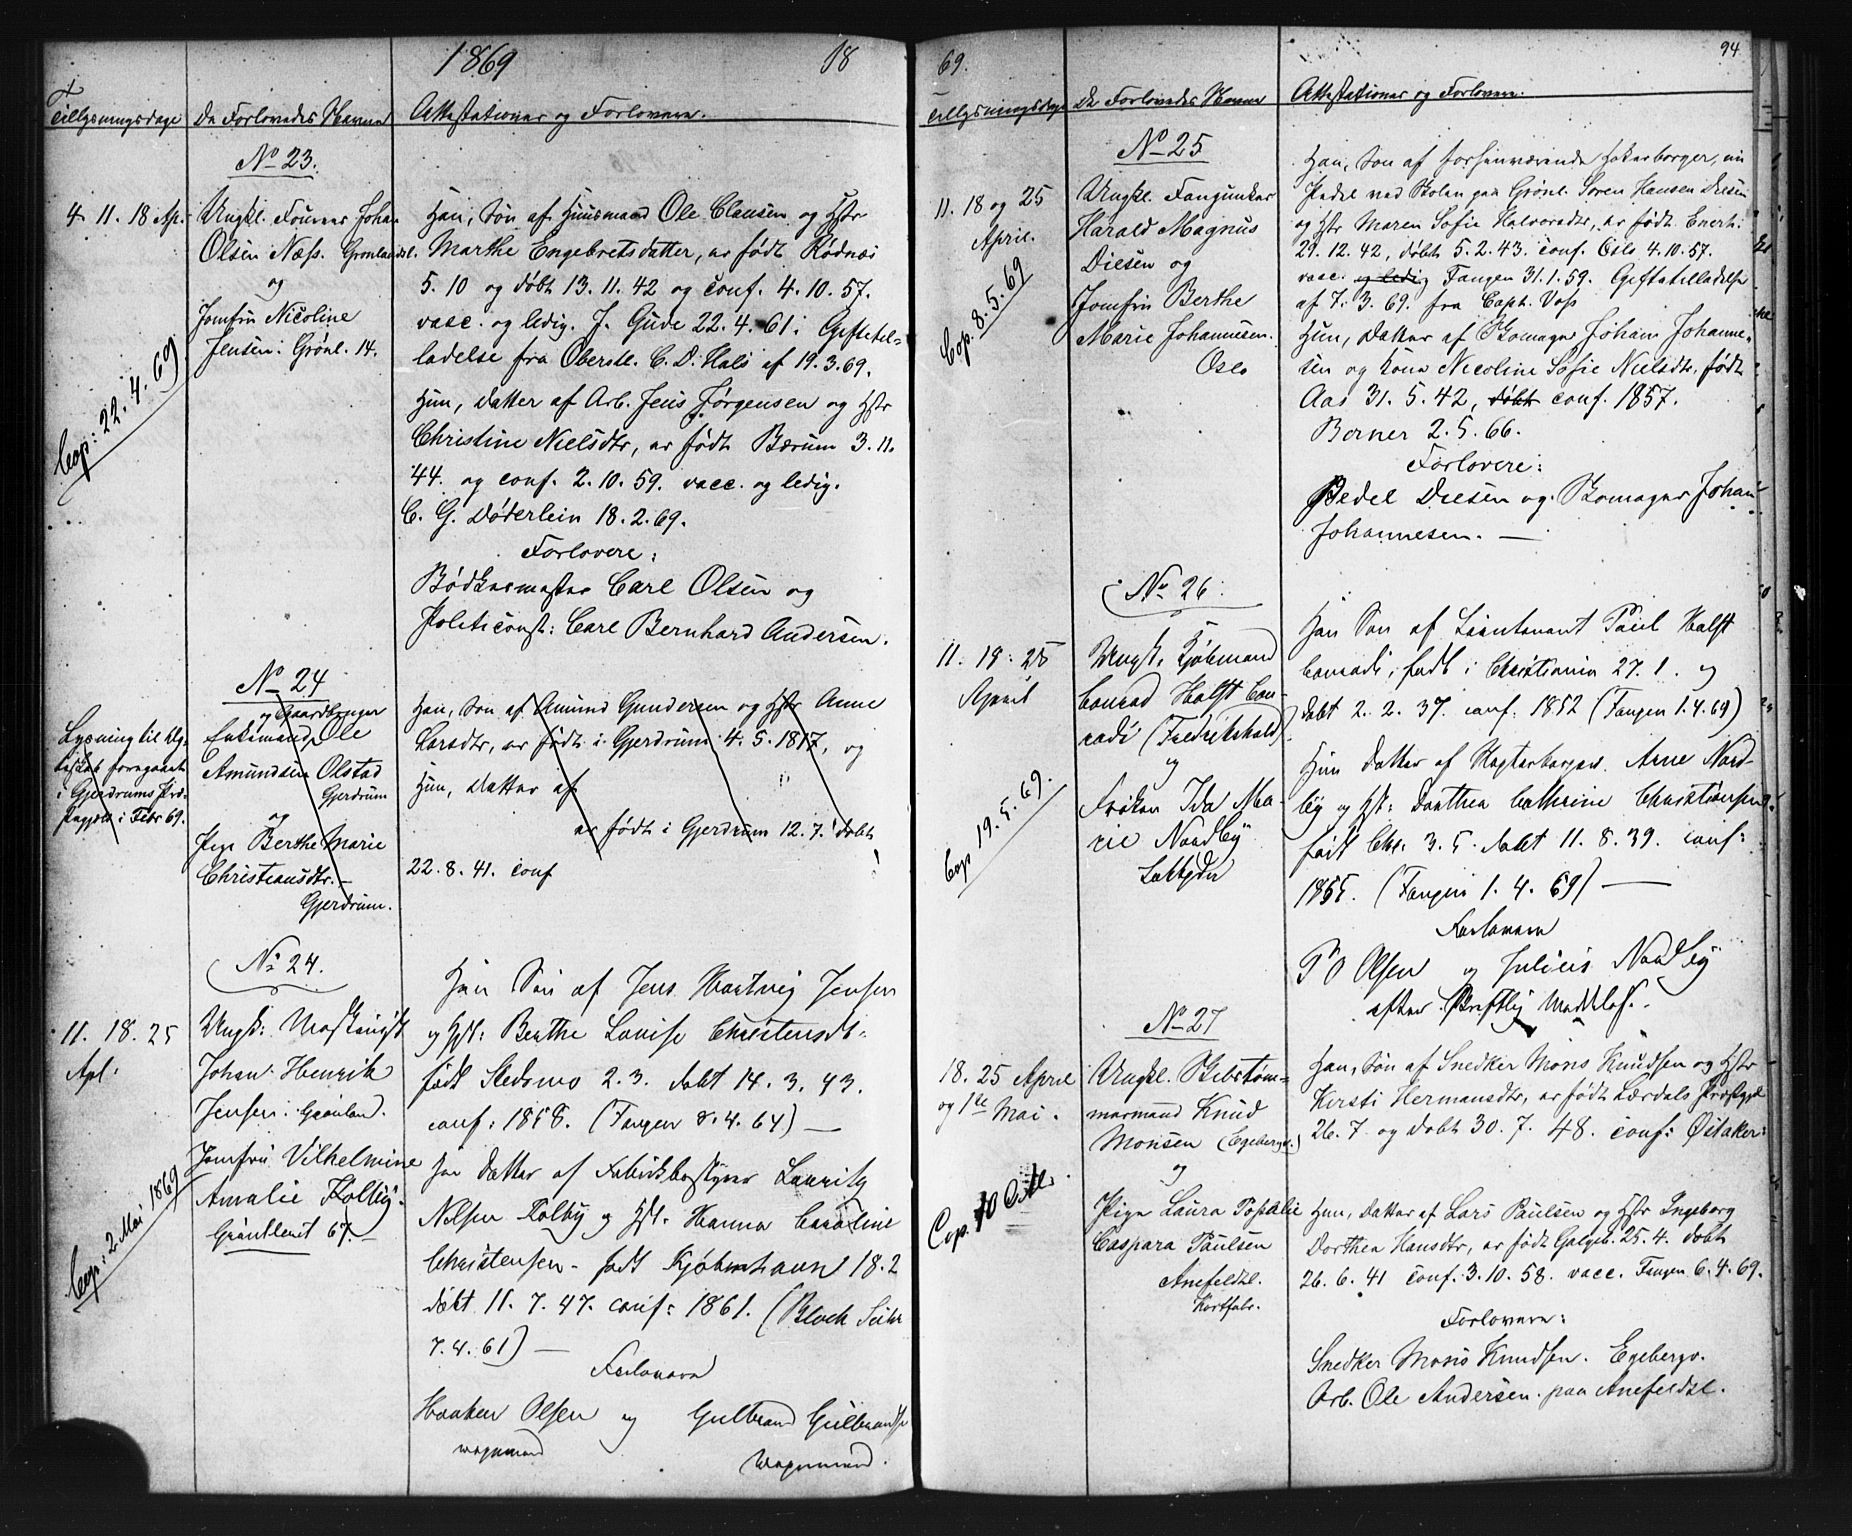 1869 18
Tillysningsdage De Forlovedes Navne Attestationer og Forlovere.
No 23.
4. 11. 18 Ap.
Ungkl. Fourer Johan
Olsen Næss. Grønlandsl.
og
Jomfru Nicoline
Jensen. Grønl. 14.
Cop: 22. 4. 69
Han, Søn af Huusmand Ole Clausen og Hstr
Marthe Engebretsdatter, er født Rødnæs
5. 10 og døbt 13. 11. 42 og conf. 4. 10. 57.
vacc. og ledig. J. Gude 22. 4. 61. Giftetil-
ladelse fra Oberstl. C. D. Hals af 19. 3. 69.
Hun, Datter af Arb. Jens Jørgensen og Hstr
Christine Nielsdtr, er født Bærum 3. 11.
44. og conf. 2. 10. 59. vacc. og ledig.
C. G. Døderlein 18. 2. 69.
Forlovere:
Bødkermester Carl Olsen og
Politiconst: Carl Bernhard Andersen.
No 24
Lysning til Æg-
teskab foregaaet
i Gjerdrums Præ-
stegjeld i Febr 69.
og Gaardbruger
Enkemand Ole
Amundsen Olstad
Gjerdrum
og
Pige Berthe Marie
Christiansdtr.
Gjerdrum.
Han, Søn af Amund Gundersen og Hstr Anne
Larsdtr, er født i Gjerdrum 4. 5. 1817, og
Hun, Datter af
er født i Gjerdrum 12. 7. døbt
22. 8. 41. conf
No 24.
11. 18. 25
Apl.
Ungk: Maskinist
Johan Henrik
Jensen. Grønland.
Jomfru Vilhelmine
Amalie Kolby.
Grønlleret 67.
Cop: 2 Mai 1869
Han Søn af Jens Hartvig Jensen
og Hst: Berthe Lovise Christensdt.
født Skedsmo 2. 3. døbt 14. 3. 43.
conf: 1858. (Fangen 8. 4. 64)
Datter af Fabrikbestyrer Lauritz
Nilsen Kolby og Hst. Hanna Caroline
Christensen - født Kjøbenhavn 18. 2
døbt 11. 7. 47. conf: 1861. (Bloch
7. 4. 61)
Forlovere
Haaken Olsen og Gulbrand Gulbrandse
vognmand Vognmand.
69. 94
Tillysningsdage De Forlovedes Navne Attestationer og Forlovere.
No 25
11. 18 og 25
April.
Cop. 8. 5. 69
Ungkl. Fangunker
Harald Magnus
Diesen og
Jomfru Berthe
Marie Johannesen.
Oslo
Han, Søn af forhenværende Høkerborger, nu
Pedel ved Skolen paa Grønl. Søren Hansen Diesen
og Hstr Maren Sofie Halvorsdtr, er født Enerh.
29. 12. 42, døbt 5. 2. 43. conf. Oslo 4. 10. 57.
vacc. og ledig Fangen 31. 1. 59. Giftetilladelse
af 7. 3. 69. fra Capt. Voss
Hun, Datter af Skomager Johan Johanne-
sen og Kone Nicoline Sofie Nielsdtr. født
Aas 31. 5. 42, døbt conf. 1857.
Berner 2. 5. 66.
Forlovere:
Pedel Diesen og Skomager Johan
Johannesen.
No 26.
11. 18. 25
April
Cop 19. 5. 69.
Ungk. Kjøbmand
Conrad Holst Con-
radi (Fredrikshald)
og
Frøken Ida Ma-
rie Nordby
Han Søn af Lieutenant Paul Holst
Conradi, født i Christiania 27. 1. og
døbt 2. 2. 37. conf: 1852 (Fangen 1. 4. 69)
Hun Datter af Arne Nord-
by og Hst: Dorthea Cathrine Christiansen
født Chr. 3. 5. døbt 11. 8. 39. conf:
1855. (Fangen 1. 4. 69)
Forlovere
P O Olsen og Julius Nordby
efter skriftlig
No 27
18. 25 April
og 1ste Mai.
Ungkl. Bibstøm-
mermand Knud
Monsen (Egeberg.)
og
Pige Laura Topalie
Caspara Paulsen
Anefeldsl.
Kortfabr.
Han, Søn af Snedker Mons Knudsen og Hstr
Kirsti Hermansdtr, er født Lærdals Præstgjel
26. 7. og døbt 30. 7. 48. conf: Østaker:
Hun, Datter af Lars Paulsen og Hstr Ingeborg
Dorthea Hansdtr, er født Galgeb. 25. 4. døbt
26. 6. 41 conf. 3. 10. 58. vacc. Fangen 6. 4. 69.
Forlovere:
Snedker Mons Knudsen. Egebergv.
Arb. Ole Andersen paa Anefeldsl.